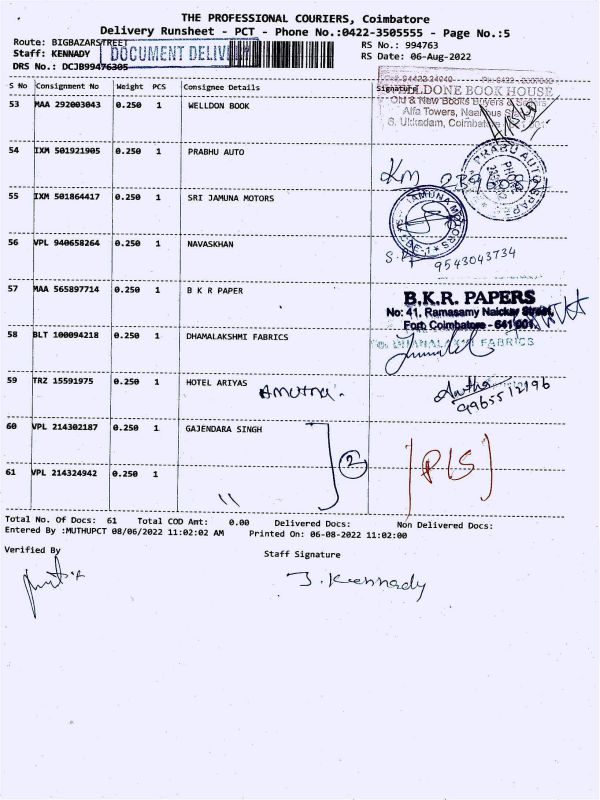 THE PROFESSIONAL COURIERS, Coimbatore
Delivery Runsheet - PCT - Phone No.:0422-3505555 - Page No.:5
Route: BIGBAZARSTREET
RS No.: 994763
Staff: KENNADY DOCUMENT DELIV
RS Date: 06-Aug-2022
DRS No.: DCJB99476305
S No Consignment No Weight PCS Consignee Details Signature
53 MAA 292003043 0.250 1 WELLDON BOOK
WELLDONE BOOK HOUSE
Old & New Books Buyers & Sellers
Alfa Towers,
S. Ukkadam, Coimbatore
54 IXM 501921905 0.250 1 PRABHU AUTO
PRABU AUTO
55 IXM 501864417 0.250 1 SRI JAMUNA MOTORS
JAMUNA MOTORS
56 VPL 940658264 0.250 1 NAVASKHAN
9543043734
57 MAA 565897714 0.250 1 B K R PAPER
B.K.R. PAPERS
No: 41, Ramasamy Naickar Street,
Fort, Coimbatore - 641 001.
58 BLT 100094218 0.250 1 DHAMALAKSHMI FABRICS
DHANALAXMI FABRICS
59 TRZ 15591975 0.250 1 HOTEL ARIYAS
Amutha.
9965512196
60 VPL 214302187 0.250 1 GAJENDARA SINGH
2
P/S
61 VPL 214324942 0.250 1
"
Total No. Of Docs: 61 Total COD Amt: 0.00 Delivered Docs: Non Delivered Docs:
Entered By :MUTHUPCT 08/06/2022 11:02:02 AM Printed On: 06-08-2022 11:02:00
Verified By
Staff Signature
J. Kennady